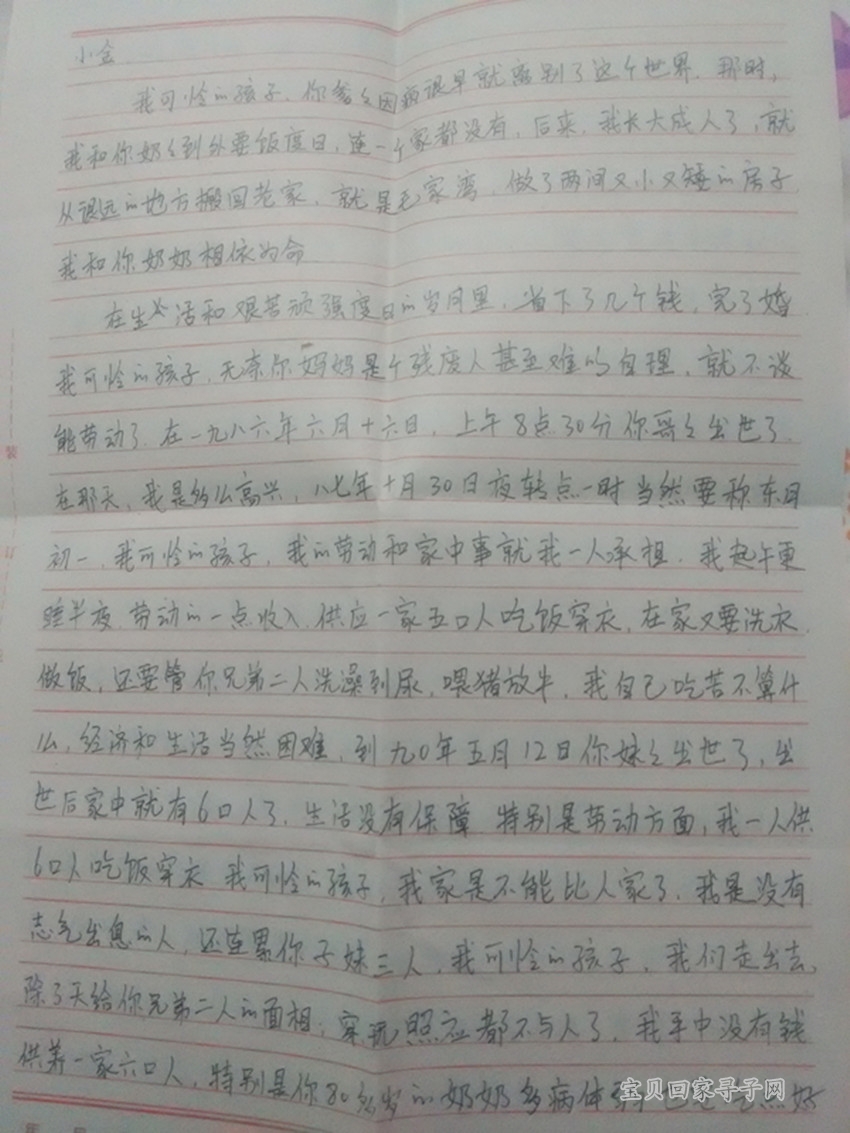 小金
我可怜的孩子、你爸々因病很早就离别了这个世界、那时,
我和你奶々到外要饭度日,连一个家都没有,后来,我长大成人了,就
从很远的地方搬回老家,就是毛家湾,做了两间又小又矮的房子
我和你奶奶相依为命
在生活和艰苦顽强度日的岁月里,省下了几个钱,完了婚
我可怜的孩子,无奈你妈妈是个残废人甚至难以自理,就不谈
能劳动了.在一九八六年六月十六日,上午8点30分你哥々出世了.
在那天,我是多么高兴,八七年十月30日夜转点一时当然要称冬月
初一、我可怜的孩子,我的劳动和家中事就我一人承担.我起午更
睡半夜.劳动的一点收入,供应一家五口人吃饭穿衣,在家又要洗衣
做饭,还要管你兄弟二人洗澡到尿,喂猪放牛,我自己吃苦不算什
么,经济和生活当然困难,到九0年五月12日你妹々出世了,出
世后家中就有6口人了.生活没有保障 特别是劳动方面,我一人供
6口人吃饭穿衣 我可怜的孩子,我家是不能比人家了.我是没有
志气出息的人,还连累你子妹三人,我可怜的孩子,我们走出去,
除了天给你兄弟二人的面相,穿玩照应都不与人了,我手中没有钱
供养一家六口人,特别是你80多岁的奶奶多病体
宝贝回家寻子网